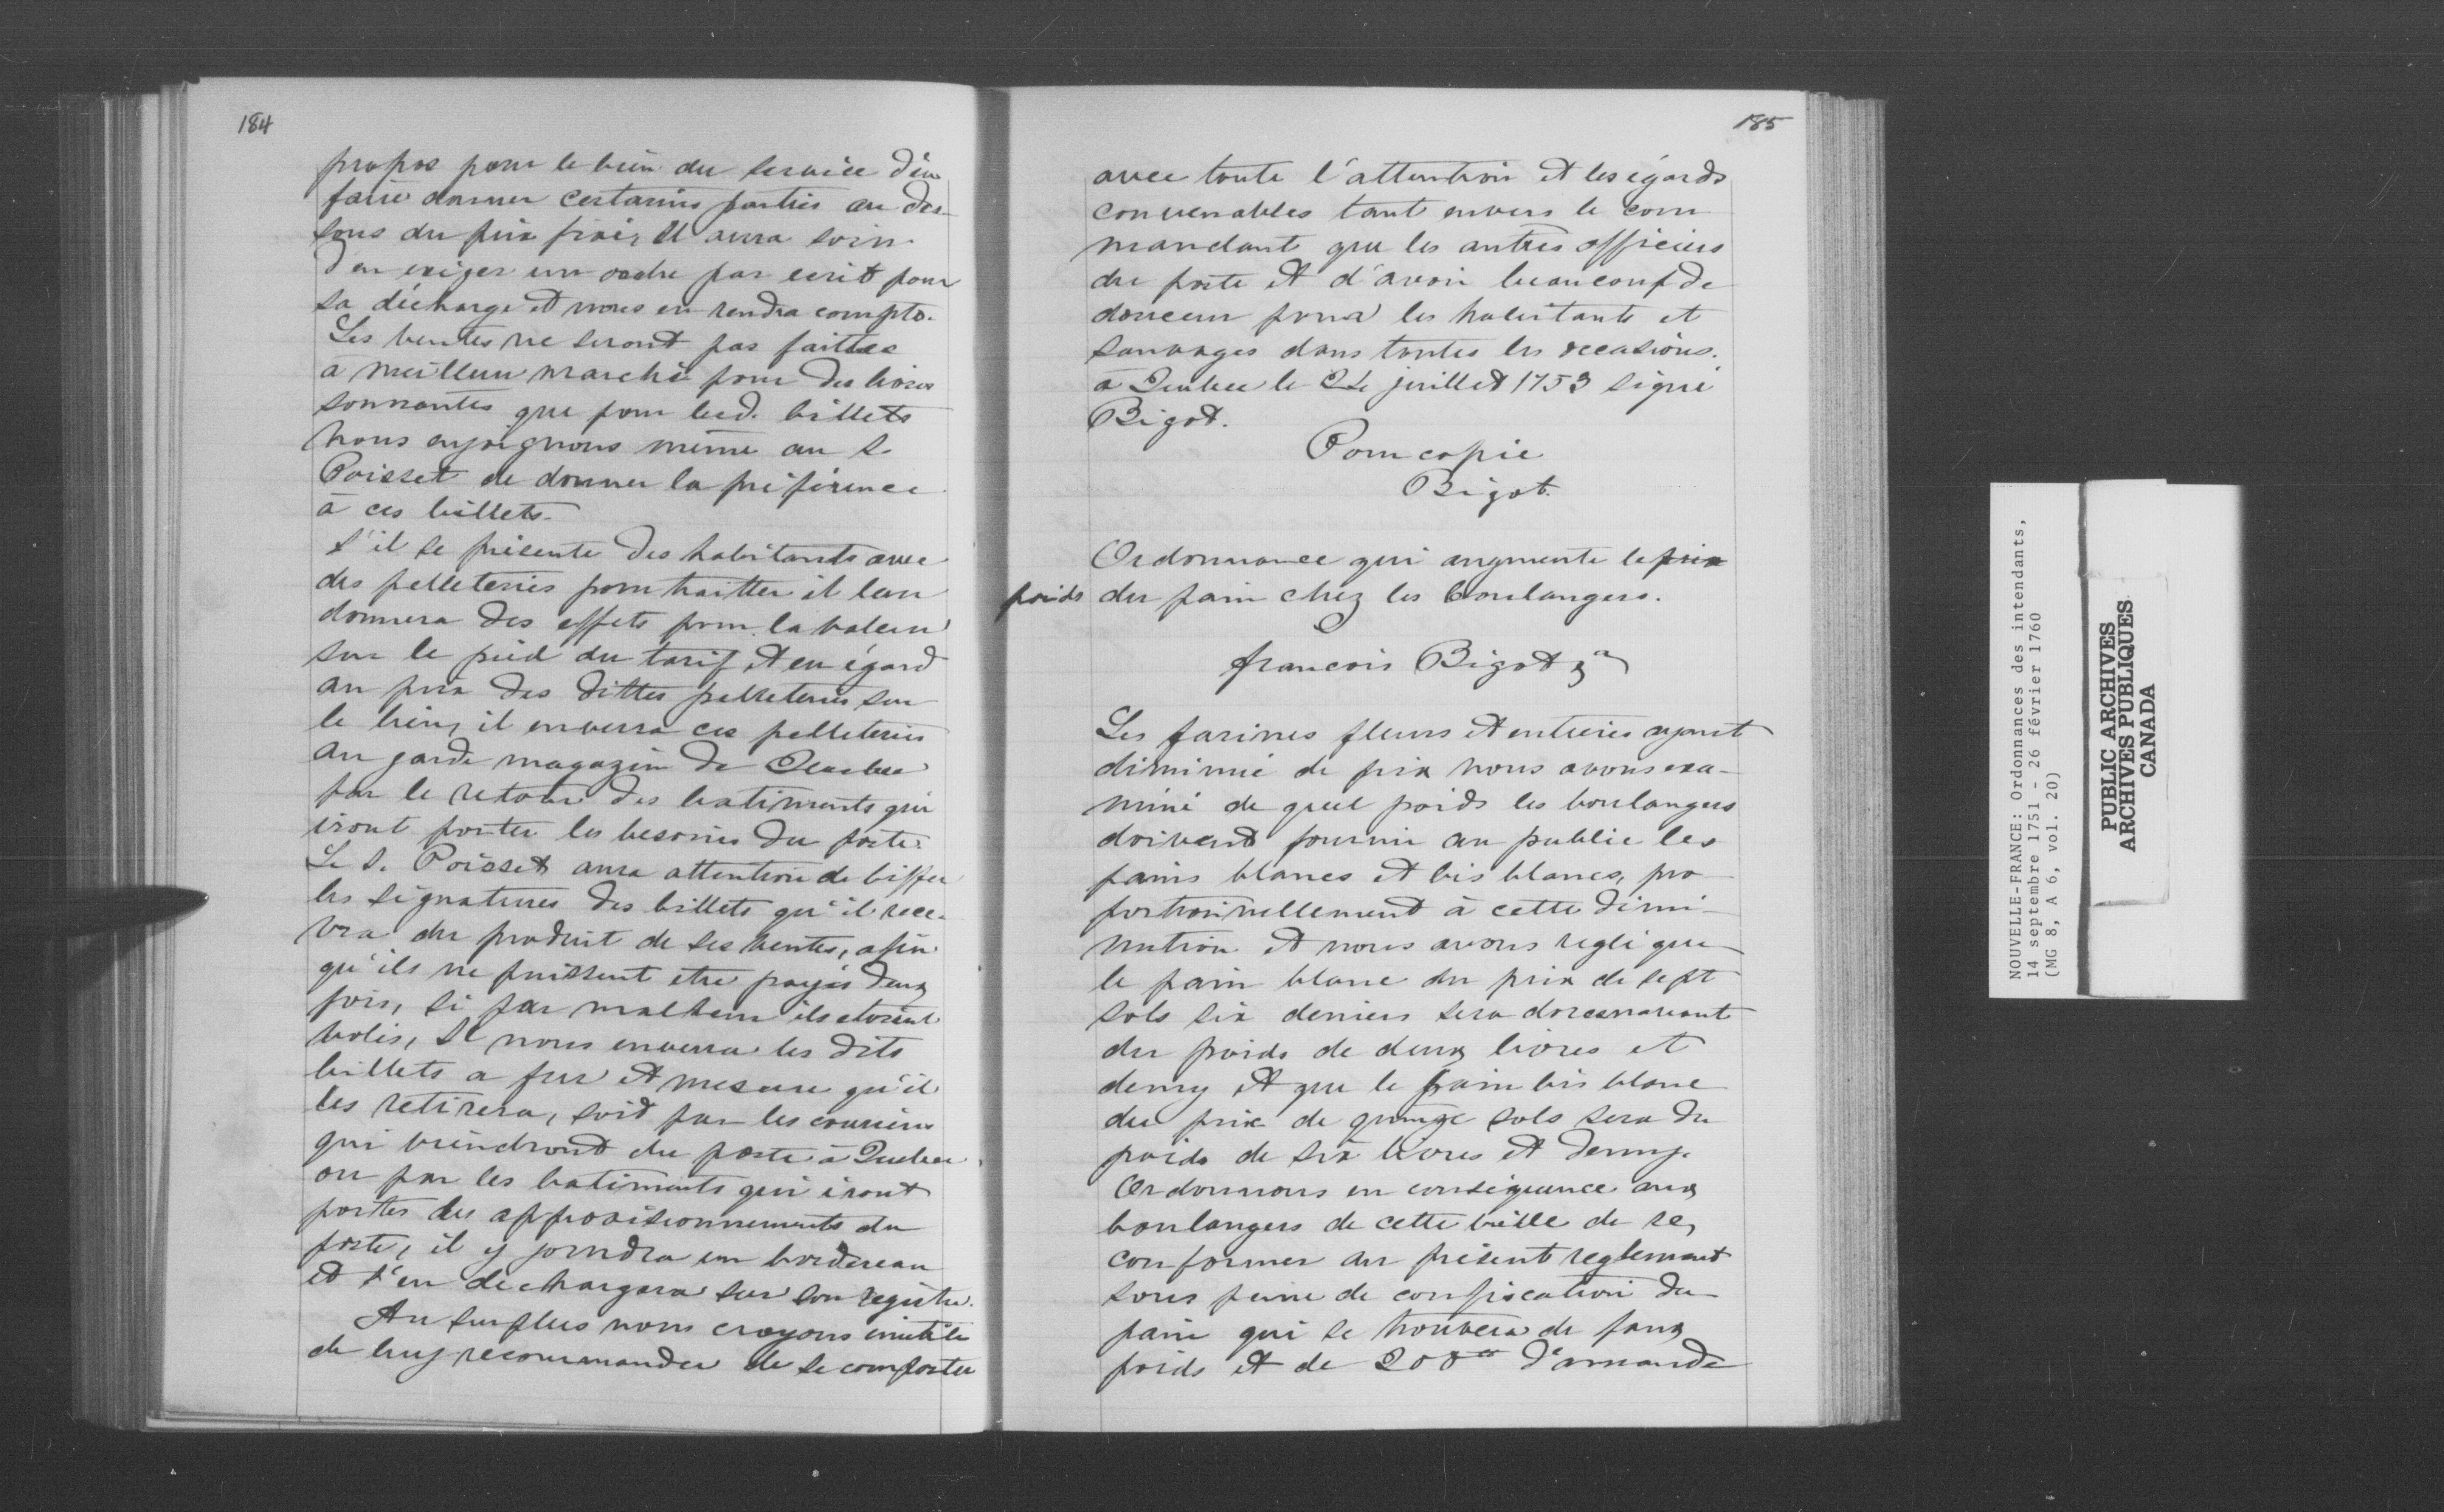 184
propos pour le bien du service d'en
faire donner certaines parties au des-
sous du prix fixé, Il aura soin
d'en exiger un ordre par ecrit pour
sa décharge et nous en rendra compte.
Les ventes ne seront pas faittes
a meilleur marché pour des livres
sonnantes que pour lesd. billets
nous enjoignons même au S.
Poisset de donner la préférence
à ces billets.
S'il se présente des habitants avec
des pelleteries pour traitter il leur
donnera des effets pour la valeur
sur le pied du tarif et eu égard
au prix des dittes pelleteries sur
le lieu, il enverra ces pelleteries
au garde magazin de Quebec
par le retour des batiments qui
iront porter les besoins du poste.
Le S. Poisset aura attention de biffer
les signatures des billets qu'il rece-
vra du produit de ses ventes, afin
qu'ils ne puissent etre payés deux
fois, si par malheur ils etoient
volés, Il nous enverra les dits
billets a fur et mesure qu'il
les retirera, soit par les couriers
qui viendront du poste à Quebec
ou par les batiments qui iront
porter les approvisionnements du
poste, il y joindra un bordereau
et s'en dechargera sur son registre.
Au surplus nous croyons inutile
de luy recommander de se comporter
185
avec toute l'attention et les égards
convenables tant envers le com
mandant que les autres officiers
du poste et d'avoir beaucoup de
douceur pour les habitants et
sauvages dans toutes les occasions.
à Quebec le juillet 1753 signé
Bigot.
Pour copie
Bigot.
Ordonnance qui augmente le prix
poids du pain chez les boulangers.
francois Bigot &a
Les farines fleurs et entieres ayant
diminué de prix nous avons exa-
miné de quel poids les boulangers
doivent fournir au public les
pains blancs et bis blancs, pro
portionnellement à cette dimi-
nution et nous avons reglé que
le pain blanc du prix de sept
sols six deniers sera doresnavant
du poids de deux livres et
demy et que le pain bis blanc
du prix de quinze sols sera du
poids de six livres et demy.
Ordonnons en conséquence aux
boulangers de cette ville de se
conformer au présent reglement
sous peine de confiscation du
pain qui se trouvera de faux
poids et de 200 d'amande
NOUVELLE-FRANCE: Ordonnances des intendants,
14 septembre 1751 - 26 février 1760
(MG 8, A 6, vol. 20)
PUBLIC ARCHIVES
ARCHIVES PUBLIQUES
CANADA